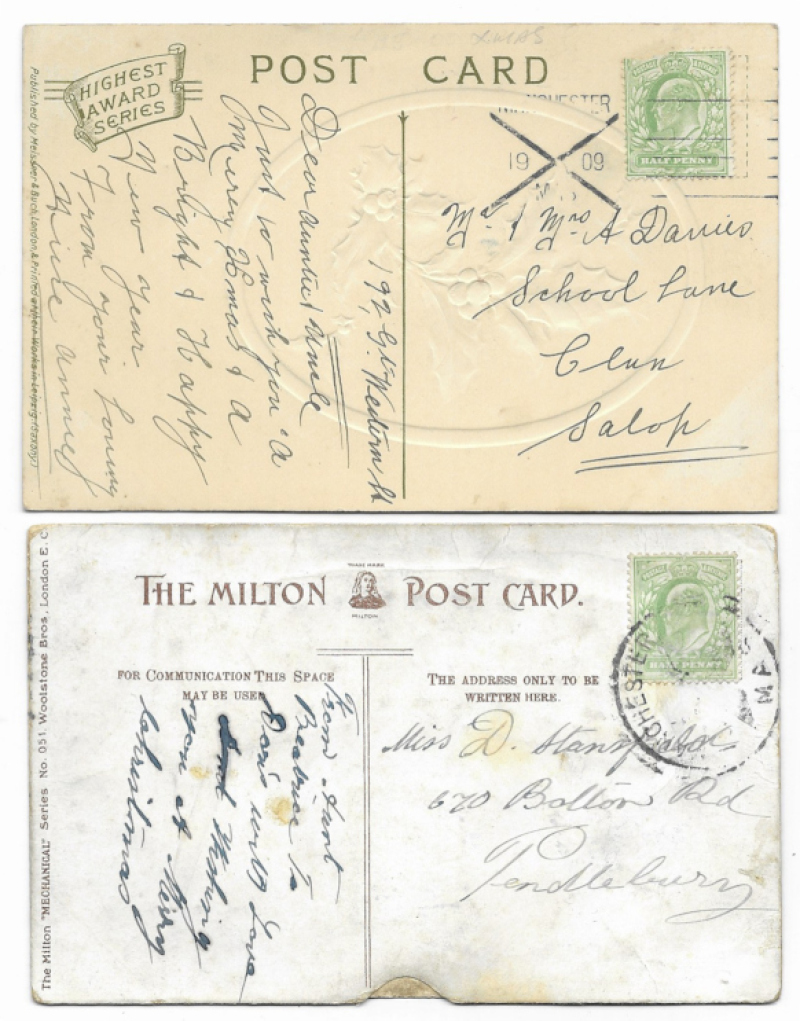 XMAS
POST CARD
HIGHEST
AWARD
SERIES
Published by Meissner & Buch, London, & Printed at their Works in Leipzig (Saxony)
192 Gt Western St
Dear Auntie & Uncle
Just to wish you a
Merry Xmas & a
Bright & Happy
New Year
From your loving
Niece Annie
CHESTER
19 09
HALF PENNY
Mr & Mrs A Davies
School Lane
Clun
Salop
THE MILTON POST CARD.
TRADE MARK
MILTON
FOR COMMUNICATION THIS SPACE
MAY BE USED
THE ADDRESS ONLY TO BE
WRITTEN HERE.
The Milton "MECHANICAL" Series No. 051. Woolstone Bros., London E. C
From Aunt
Beatrice To
Doris with Love
and Wishing
you a Merry
Christmas
HALF PENNY
CHESTER
Miss D. Stansfield
670 Bolton Rd
Pendlebury